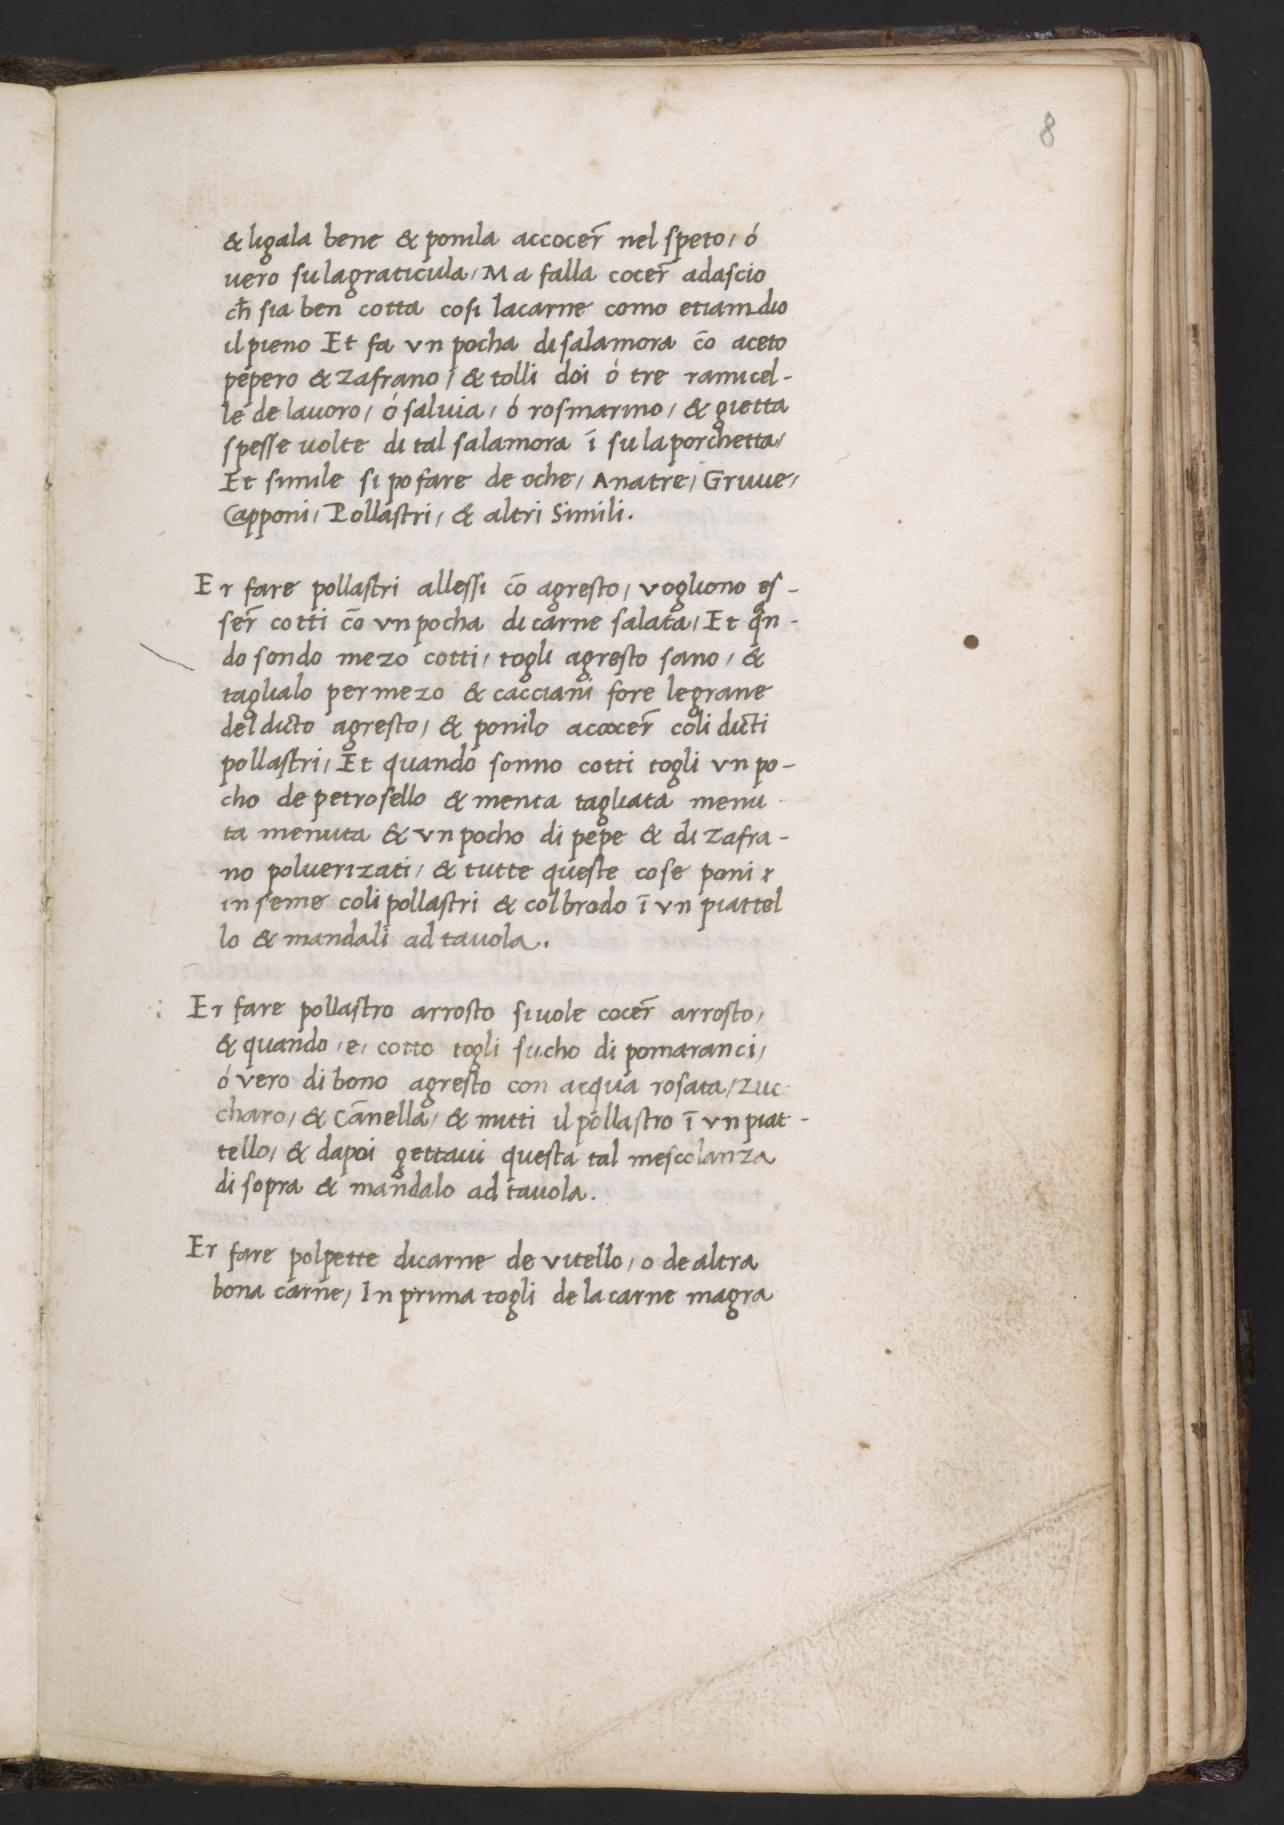 8
& ligala bene & ponila accocer̄ nel speto, ó
vero su lagraticula, Ma falla cocer̄ adascio
ch̄ sia ben cotta cosi lacarne como etiamdio
il pieno Et fa vn pocha di salamora cō aceto
pepero & zafrano, & tolli doi ó tre ramicel-
le de lauoro, ó saluia, ó rosmarino, & gietta
spesse uolte di tal salamora ī su la porchetta,
Et simile si po fare de oche, Anatre, Gruue,
Capponi, Pollastri, & altri Simili.
Er fare pollastri allessi cō agresto, vogliono es-
ser̄ cotti cō vn pocha di carne salata, Et qn-
do sondo mezo cotti, togli agresto sano, &
taglialo per mezo & cacciani fore legrane
del dicto agresto, & ponilo acocer̄ coli dicti
pollastri, Et quando sonno cotti togli vn po-
cho de petrosello & menta tagliata menu-
ta menuta & vn pocho di pepe & di zafra-
no poluerizati, & tutte queste cose poni
inseme coli pollastri & col brodo ī vn piattel
lo & mandali ad tauola.
Er fare pollastro arrosto si uole cocer̄ arrosto,
& quando, e, cotto togli sucho di pomaranci,
ó vero di bono agresto con acqua rosata, zuc
charo, & Cānella, & mitti il pollastro ī vn piat-
tello, & dapoi gettaui questa tal mescolanza
di sopra & mandalo ad tauola.
Er fare polpette di carne de vitello, o de altra
bona carne, In prima togli de la carne magra